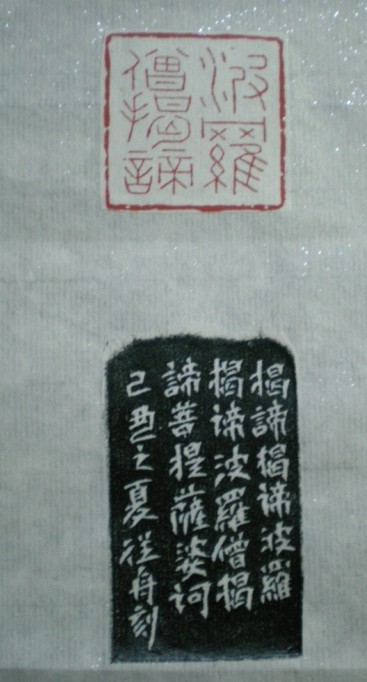 波羅
僧揭諦
揭諦揭諦波羅
揭諦波羅僧揭
諦菩提薩婆訶
己酉之夏從舟刻